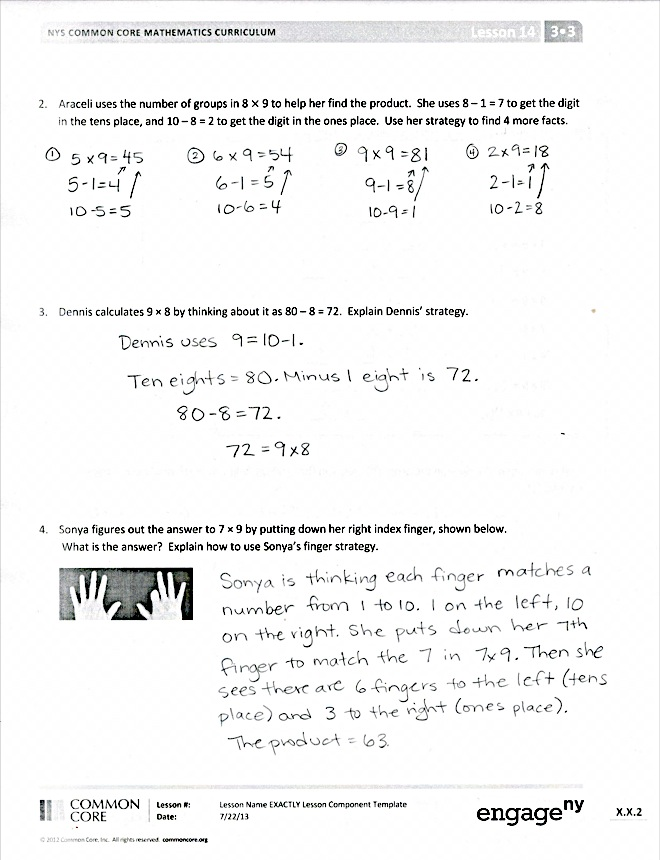 NYS COMMON CORE MATHEMATICS CURRICULUM Lesson 14 3•3
2. Araceli uses the number of groups in 8 × 9 to help her find the product. She uses 8 – 1 = 7 to get the digit
in the tens place, and 10 – 8 = 2 to get the digit in the ones place. Use her strategy to find 4 more facts.
① 5 x 9 = 45 ② 6 x 9 = 54 ③ 9 x 9 = 81 ④ 2 x 9 = 18
5-1=4 6-1=5 9-1=8 2-1=1
10-5=5 10-6=4 10-9=1 10-2=8
3. Dennis calculates 9 × 8 by thinking about it as 80 – 8 = 72. Explain Dennis' strategy.
Dennis uses 9=10-1.
Ten eights = 80. Minus 1 eight is 72.
80-8=72.
72 = 9x8
4. Sonya figures out the answer to 7 × 9 by putting down her right index finger, shown below.
What is the answer? Explain how to use Sonya's finger strategy.
Sonya is thinking each finger matches a
number from 1 to 10. 1 on the left, 10
on the right. She puts down her 7th
finger to match the 7 in 7x9. Then she
sees there are 6 fingers to the left (tens
place) and 3 to the right (ones place).
The product = 63.
COMMON CORE
Lesson #: Lesson Name EXACTLY Lesson Component Template
Date: 7/22/13
engage ny
X.X.2
© 2012 Common Core, Inc. All rights reserved. commoncore.org